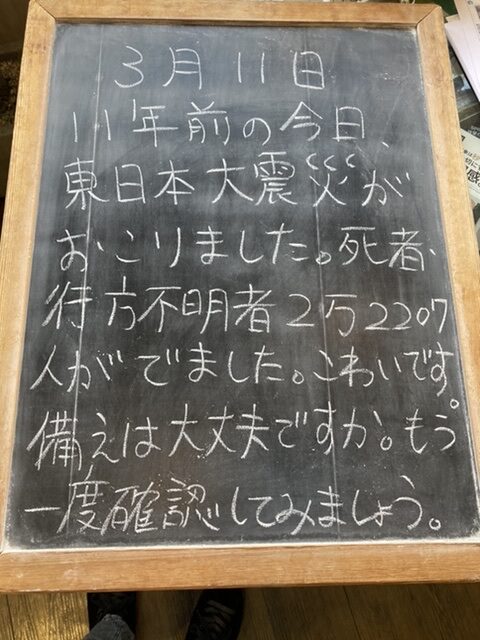 3月11日
11年前の今日、
東日本大震災が
おこりました。死者、
行方不明者2万2207
人がでました。こわいです。
備えは大丈夫ですか。もう
一度確認してみましょう。